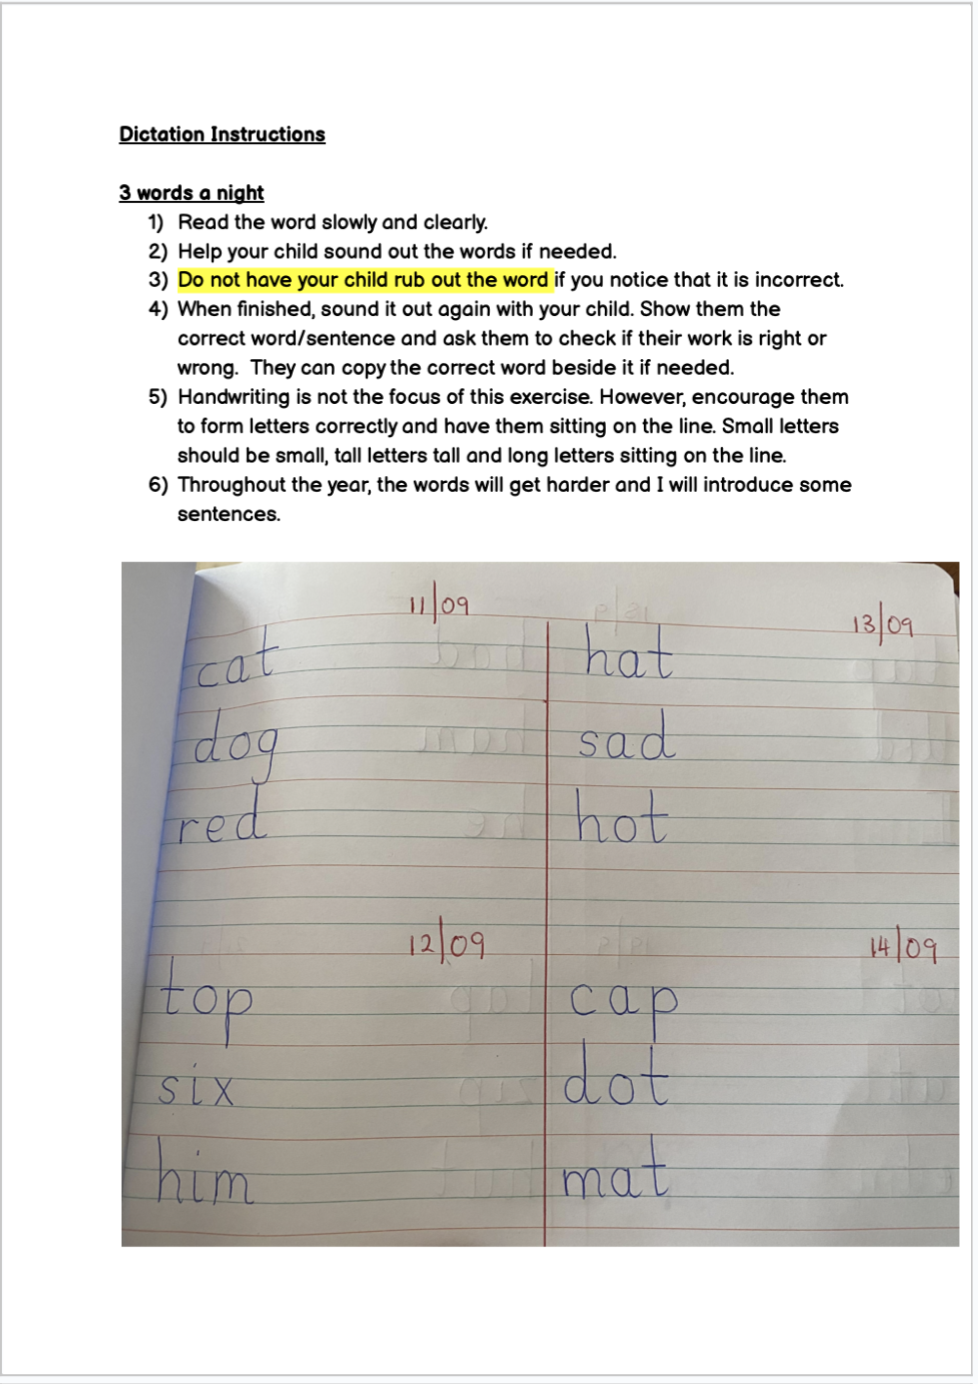 Dictation Instructions
3 words a night
1) Read the word slowly and clearly.
2) Help your child sound out the words if needed.
3) Do not have your child rub out the word if you notice that it is incorrect.
4) When finished, sound it out again with your child. Show them the
correct word/sentence and ask them to check if their work is right or
wrong. They can copy the correct word beside it if needed.
5) Handwriting is not the focus of this exercise. However, encourage them
to form letters correctly and have them sitting on the line. Small letters
should be small, tall letters tall and long letters sitting on the line.
6) Throughout the year, the words will get harder and I will introduce some
sentences.
11/09
cat
dog
red
12/09
top
six
him
13/09
hat
sad
hot
14/09
cap
dot
mat